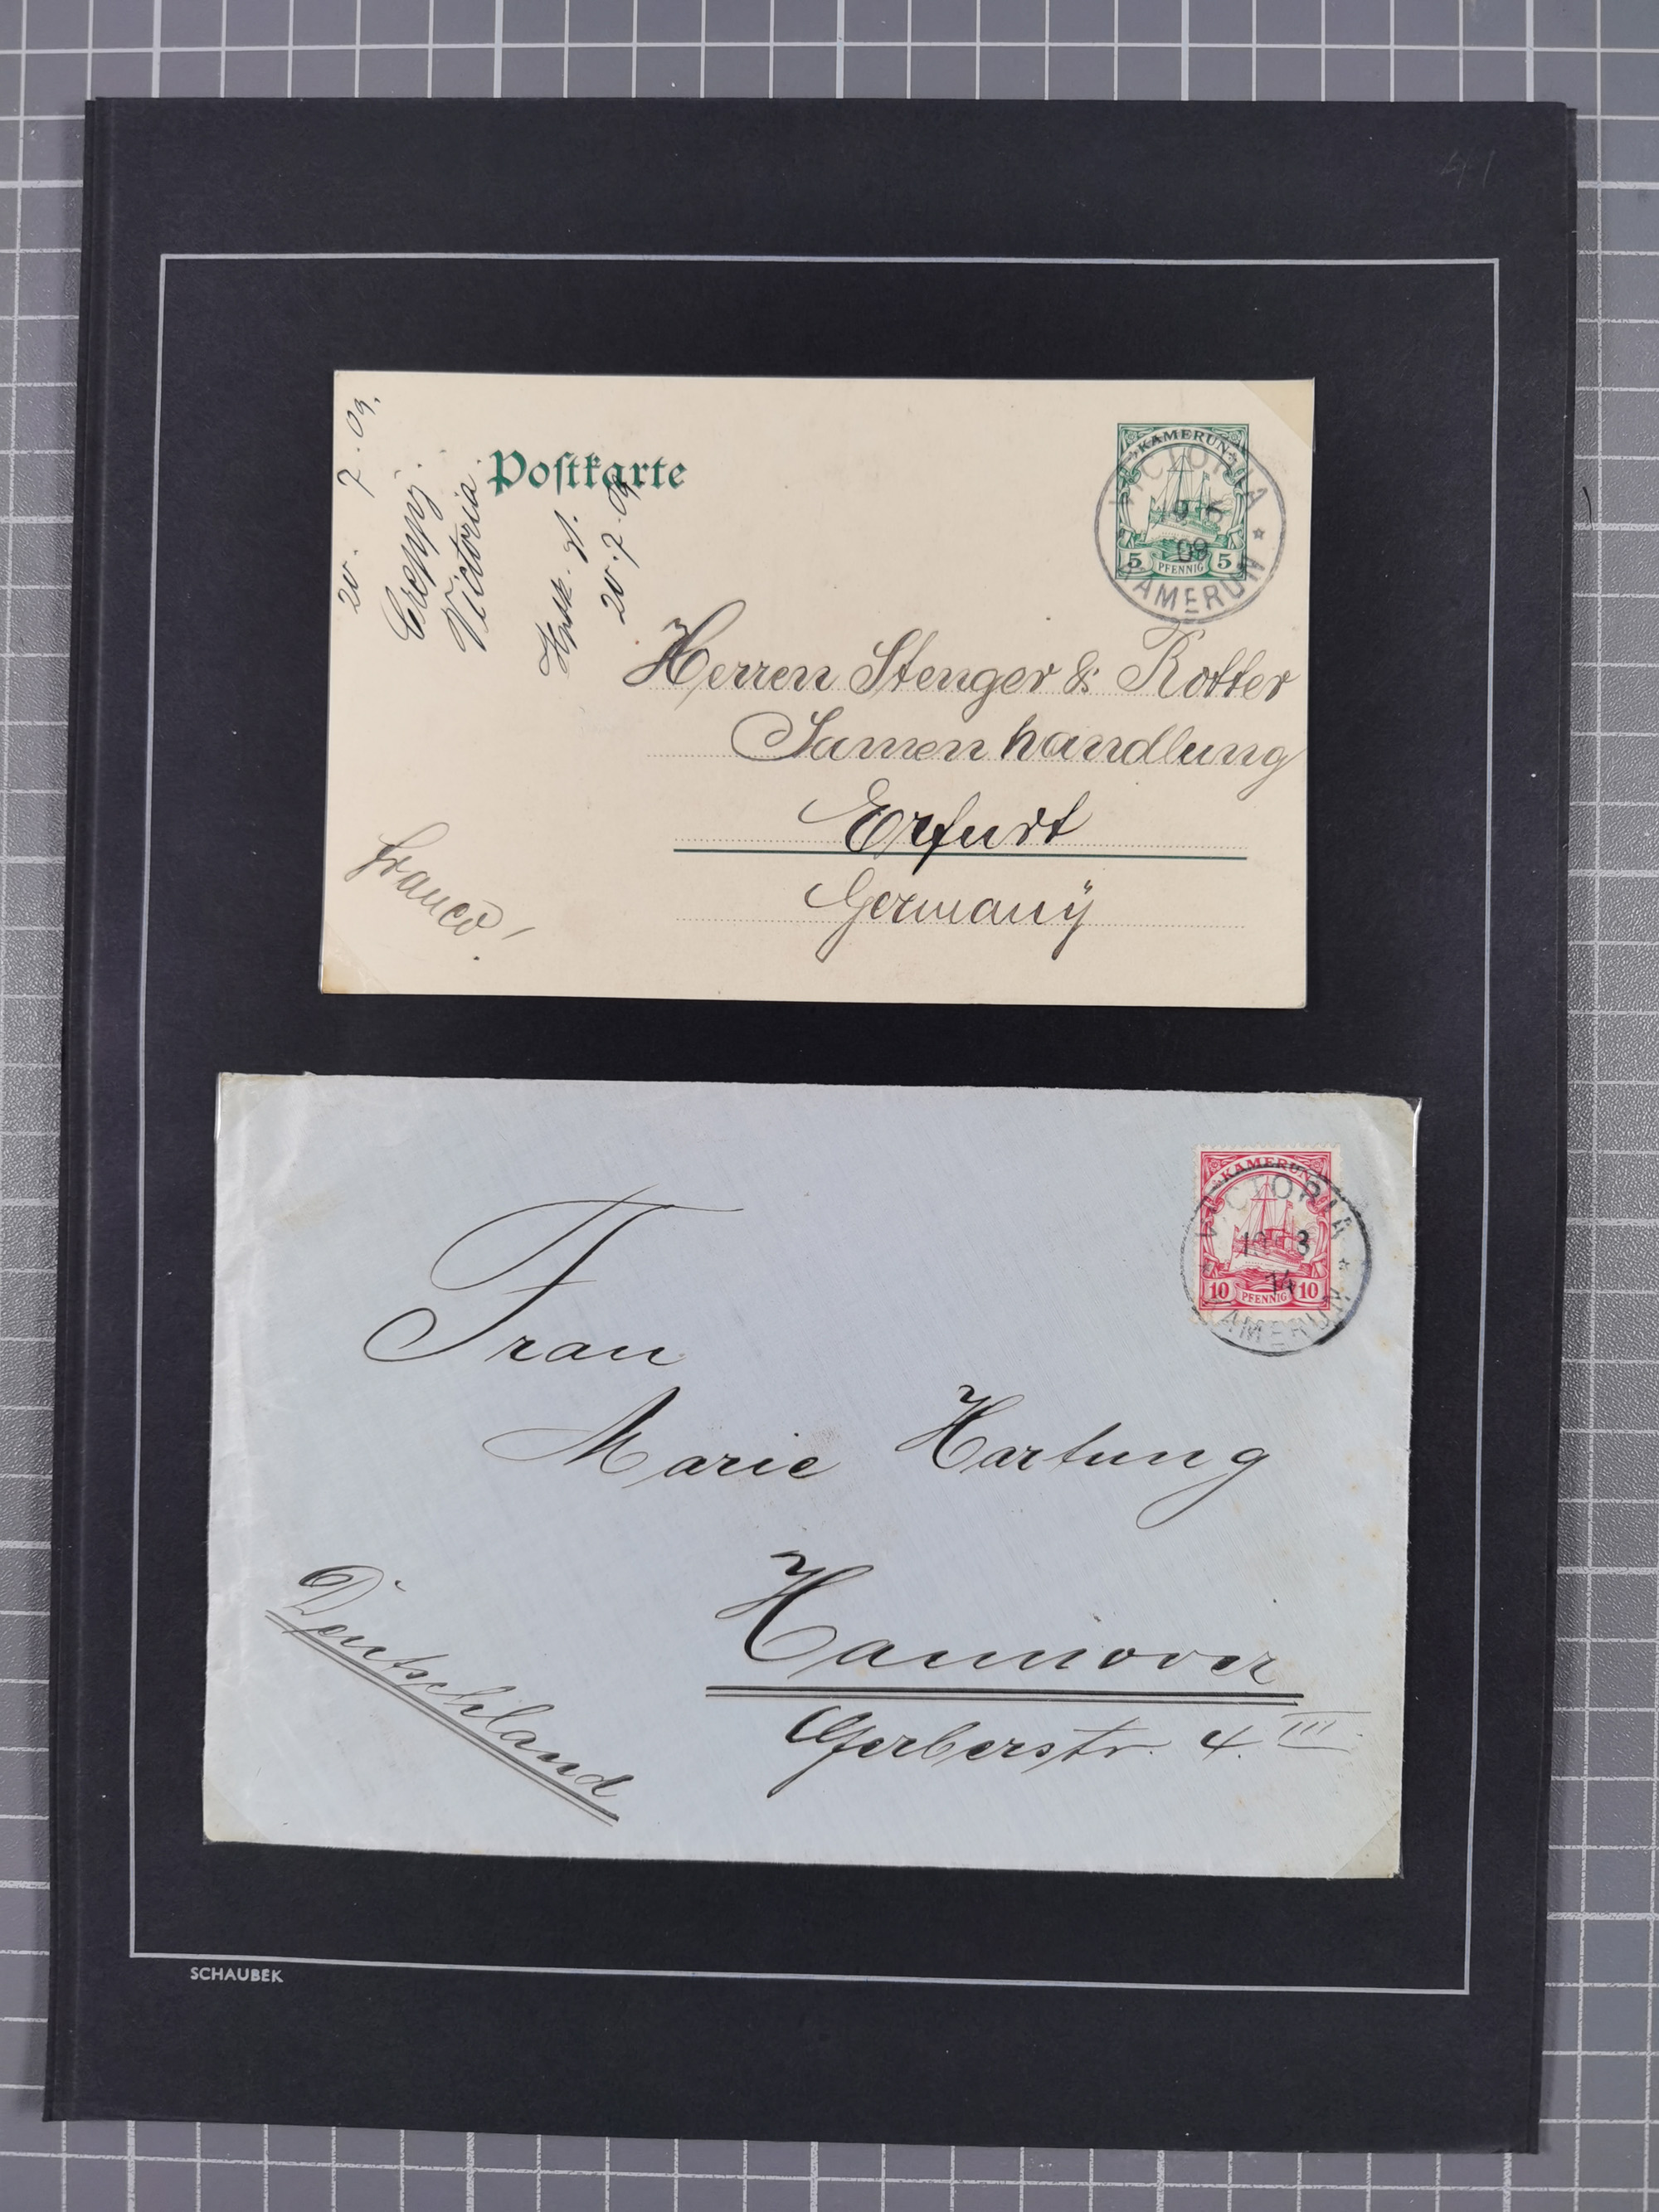 Postkarte
20. 7. 09.
Victoria.
20.7.09
KAMERUN
5 PFENNIG 5
VICTORIA
09
KAMERUN
Herren Stenger & Rotter
Samenhandlung
Erfurt
Germanÿ
franco
KAMERUN
10 PFENNIG 10
VICTORIA
3
14
KAMERUN
Frau
Marie Hartung
Hannover
Gerberstr. 4. III.
Deutschland
SCHAUBEK